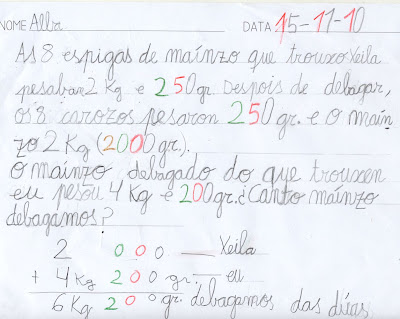 NOME Alba DATA 15-11-10
As 8 espigas de maínzo que trouxo Xeila
pesaban 2 Kg e 250 gr. Despois de debagar,
os 8 carozos pesaron 250 gr. e o maín
zo 2 Kg (2000 gr.).
O maínzo debagado do que trouxen
eu pesou 4 Kg e 200 gr. ¿Canto maínzo
debagamos?
2 000 — Xeila
+ 4 Kg 200 gr. — eu
6 Kg 200 gr. debagamos das dúas